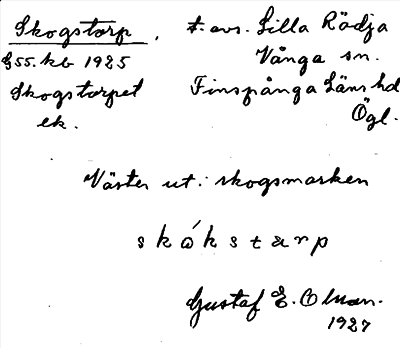 Skogstorp, t. avs. Lilla Rödja
G55. kb 1925 Vånga sn.
Skogstorpet Finspånga Läns hd
ek. Ögl.
Väster ut i skogsmarken
skåkstarp
Gustaf E. Olman.
1927